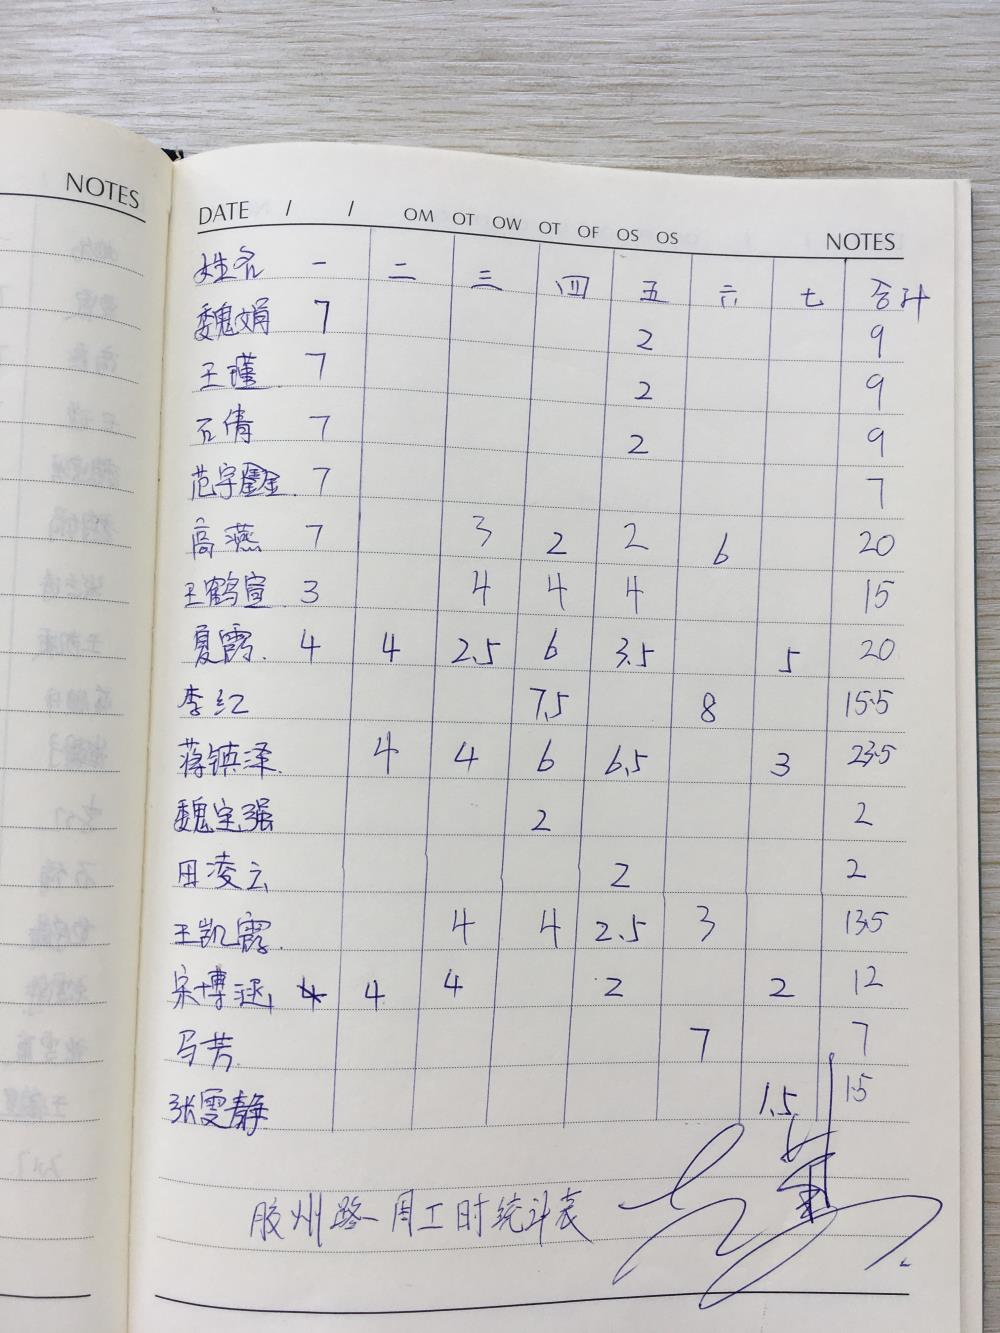 NOTES
DATE / / OM OT OW OT OF OS OS NOTES
姓名 一 二 三 四 五 六 七 合计
魏娟 7 2 9
王瑾 7 2 9
石倩 7 2 9
范宇鑫 7 7
高燕 7 3 2 2 6 20
王鹤宣 3 4 4 4 15
夏霞 4 4 2.5 6 3.5 5 20
李红 7.5 8 15.5
蒋镇泽 4 4 6 6.5 3 23.5
魏宝强 2 2
田凌云 2 2
王凯霞 4 4 2.5 3 13.5
宋博涵 4 4 2 2 12
马芳 7 7
张雯静 1.5 1.5
胶州路一周工时统计表